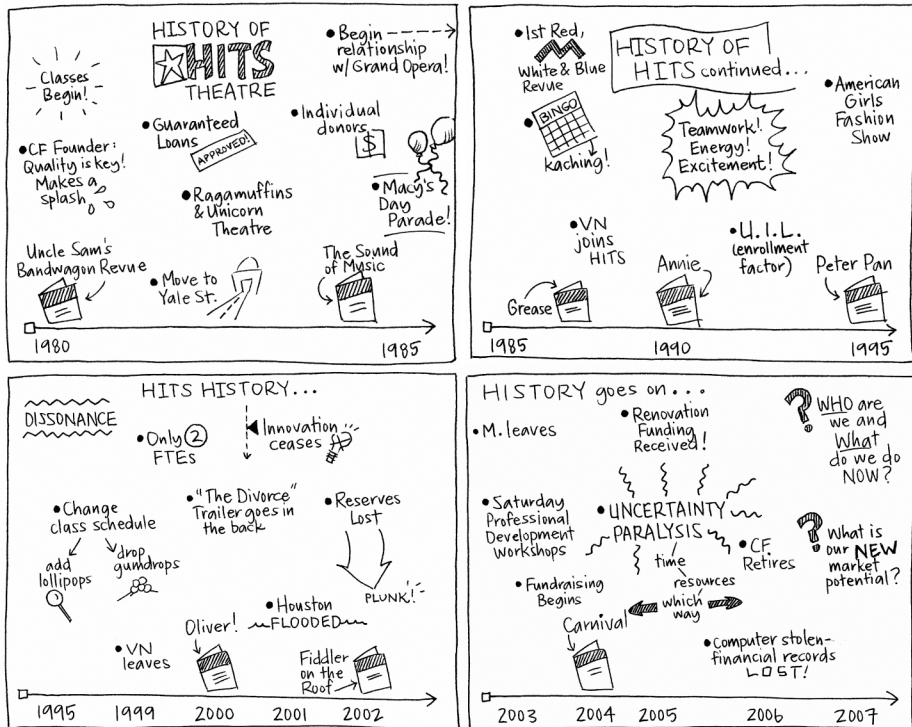 HISTORY OF
HITS
THEATRE
Classes
Begin!
• Begin
relationship
w/ Grand Opera!
• Guaranteed
Loans
APPROVED!
• Individual
donors
$
• CF Founder:
Quality is key!
Makes a
splash
• Ragamuffins
& Unicorn
Theatre
• Macy's
Day
Parade!
Uncle Sam's
Bandwagon Revue
• Move to
Yale St.
The Sound
of Music
1980
1985
• 1st Red,
White & Blue
Revue
HISTORY OF
HITS continued...
• American
Girls
Fashion
Show
BINGO
kaching!
Teamwork!
Energy!
Excitement!
• VN
joins
HITS
• U.I.L.
(enrollment
factor)
Grease
Annie
Peter Pan
1985
1990
1995
HITS HISTORY...
DISSONANCE
• Only 2
FTEs
Innovation
ceases
• Change
class schedule
add
lollipops
drop
gumdrops
• "The Divorce"
Trailer goes in
the back
• Reserves
Lost
PLUNK!
• Houston
FLOODED
• VN
leaves
Oliver!
Fiddler
on the
Roof
1995
1999
2000
2001
2002
HISTORY goes on...
• M. leaves
• Renovation
Funding
Received!
? WHO are
we and
What
do we do
NOW?
• Saturday
Professional
Development
Workshops
• UNCERTAINTY
PARALYSIS
time
resources
which
way
• C.F.
Retires
? What is
our NEW
market
potential?
• Fundraising
Begins
Carnival
• Computer stolen-
financial records
LOST!
2003
2004
2005
2006
2007